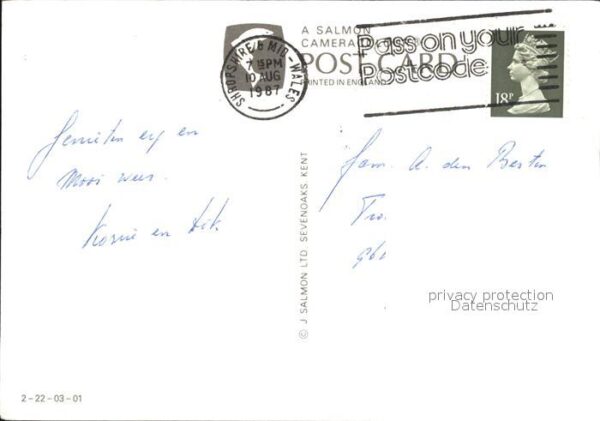 A SALMON
CAMERA
POST CARD
PRINTED IN ENGLAND
SHROPSHIRE & MID-WALES
7 15 PM
10 AUG
1987
Pass on your
Postcode
18P
Genieten erg en
Mooi weer.
en Dik
Fam. A. den Besten
960
© J SALMON LTD SEVENOAKS KENT
privacy protection
Datenschutz
2-22-03-01